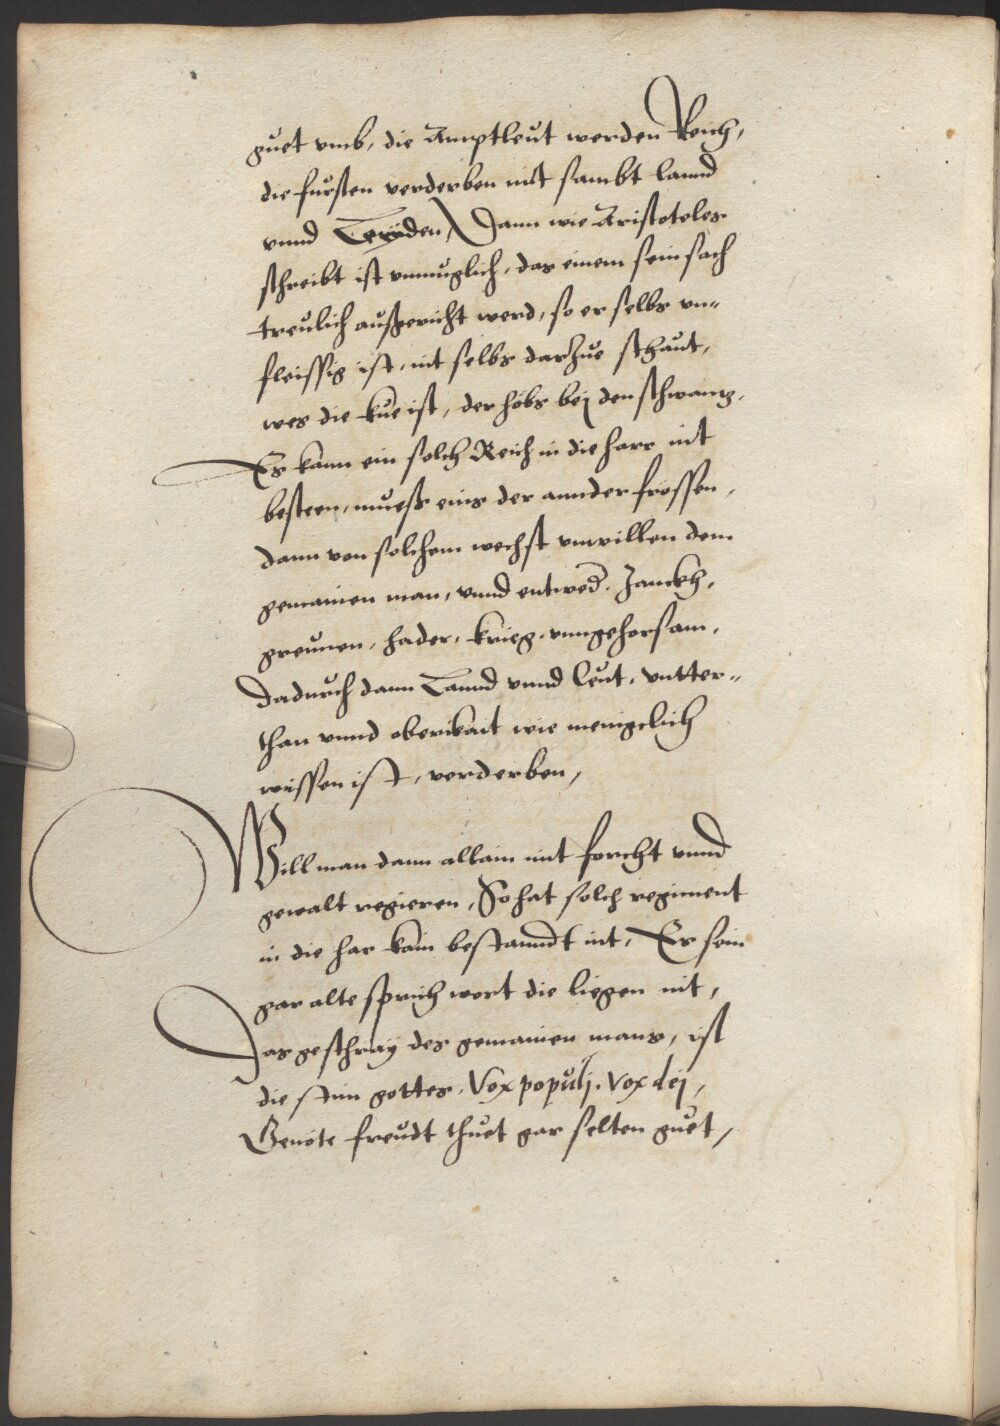 guet vmb, die Amptleut werden Reich,
die fursten verderben mit sambt lannd
vnnd Leuden, Dann wie Aristoteles
schreibt ist vnmuglich, das einem sein sach
treulich außgericht werd, so er selbs vn-
fleissig ist, nit selbs darzue schaut,
wes die kue ist, der hebs bej den schwantz,
Es kann ein solch Reich in die harr nit
besteen, mueß eins der annder fressen,
dann von solchem wechst vnwillen dem
gemainen man, vnnd entwed. Zanckh,
greinen, hader, krieg, vnngehorsam,
Dadurch dann Lannd vnnd leut, vntter-
than vnnd oberikait wie menigclich
wissen ist, verderben,
Will man dann allain mit forcht vnnd
gewalt regieren, So hat solch regiment
in die har kain bestanndt nit, Er sein
gar alte sprich wort die liegen nit,
Das geschray des gemainen mans, ist
die stim gottes. Vox populj. Vox dej,
Genote freudt thuet gar selten guet,